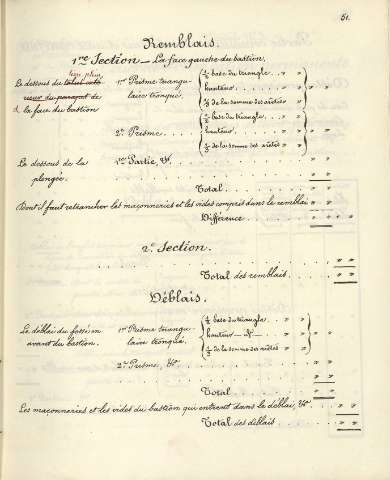 51.
Remblais.
1re Section — La face gauche du bastion.
Le dessous du
la face du bastion
1er Prisme triangu-
laire tronqué
½ base du triangle . . " "
hauteur . . . . " "
⅓ de la somme des arêtes " "
2e Prisme . . . .
½ base du triangle . . . " "
hauteur . . . . " "
⅓ de la somme des arêtes " "
Le dessous de la
plongée.
1re Partie, &c. . . . . " "
Total . . . . " "
Dont il faut retrancher les maçonneries et les vides compris dans le remblai " "
Différence . . . . " " "
2e Section.
Total des remblais . . . . " "
Déblais.
Le déblai du fossé en
avant du bastion.
1er Prisme triangu-
laire tronqué.
½ base du triangle " "
hauteur — &c. " "
⅓ de la somme des arêtes " "
2e Prisme, &c . . . . " "
" "
Total . . . . " "
Les maçonneries et les vides du bastion qui entrent dans le déblai, &c . . . " "
Total des déblais . . . . " "